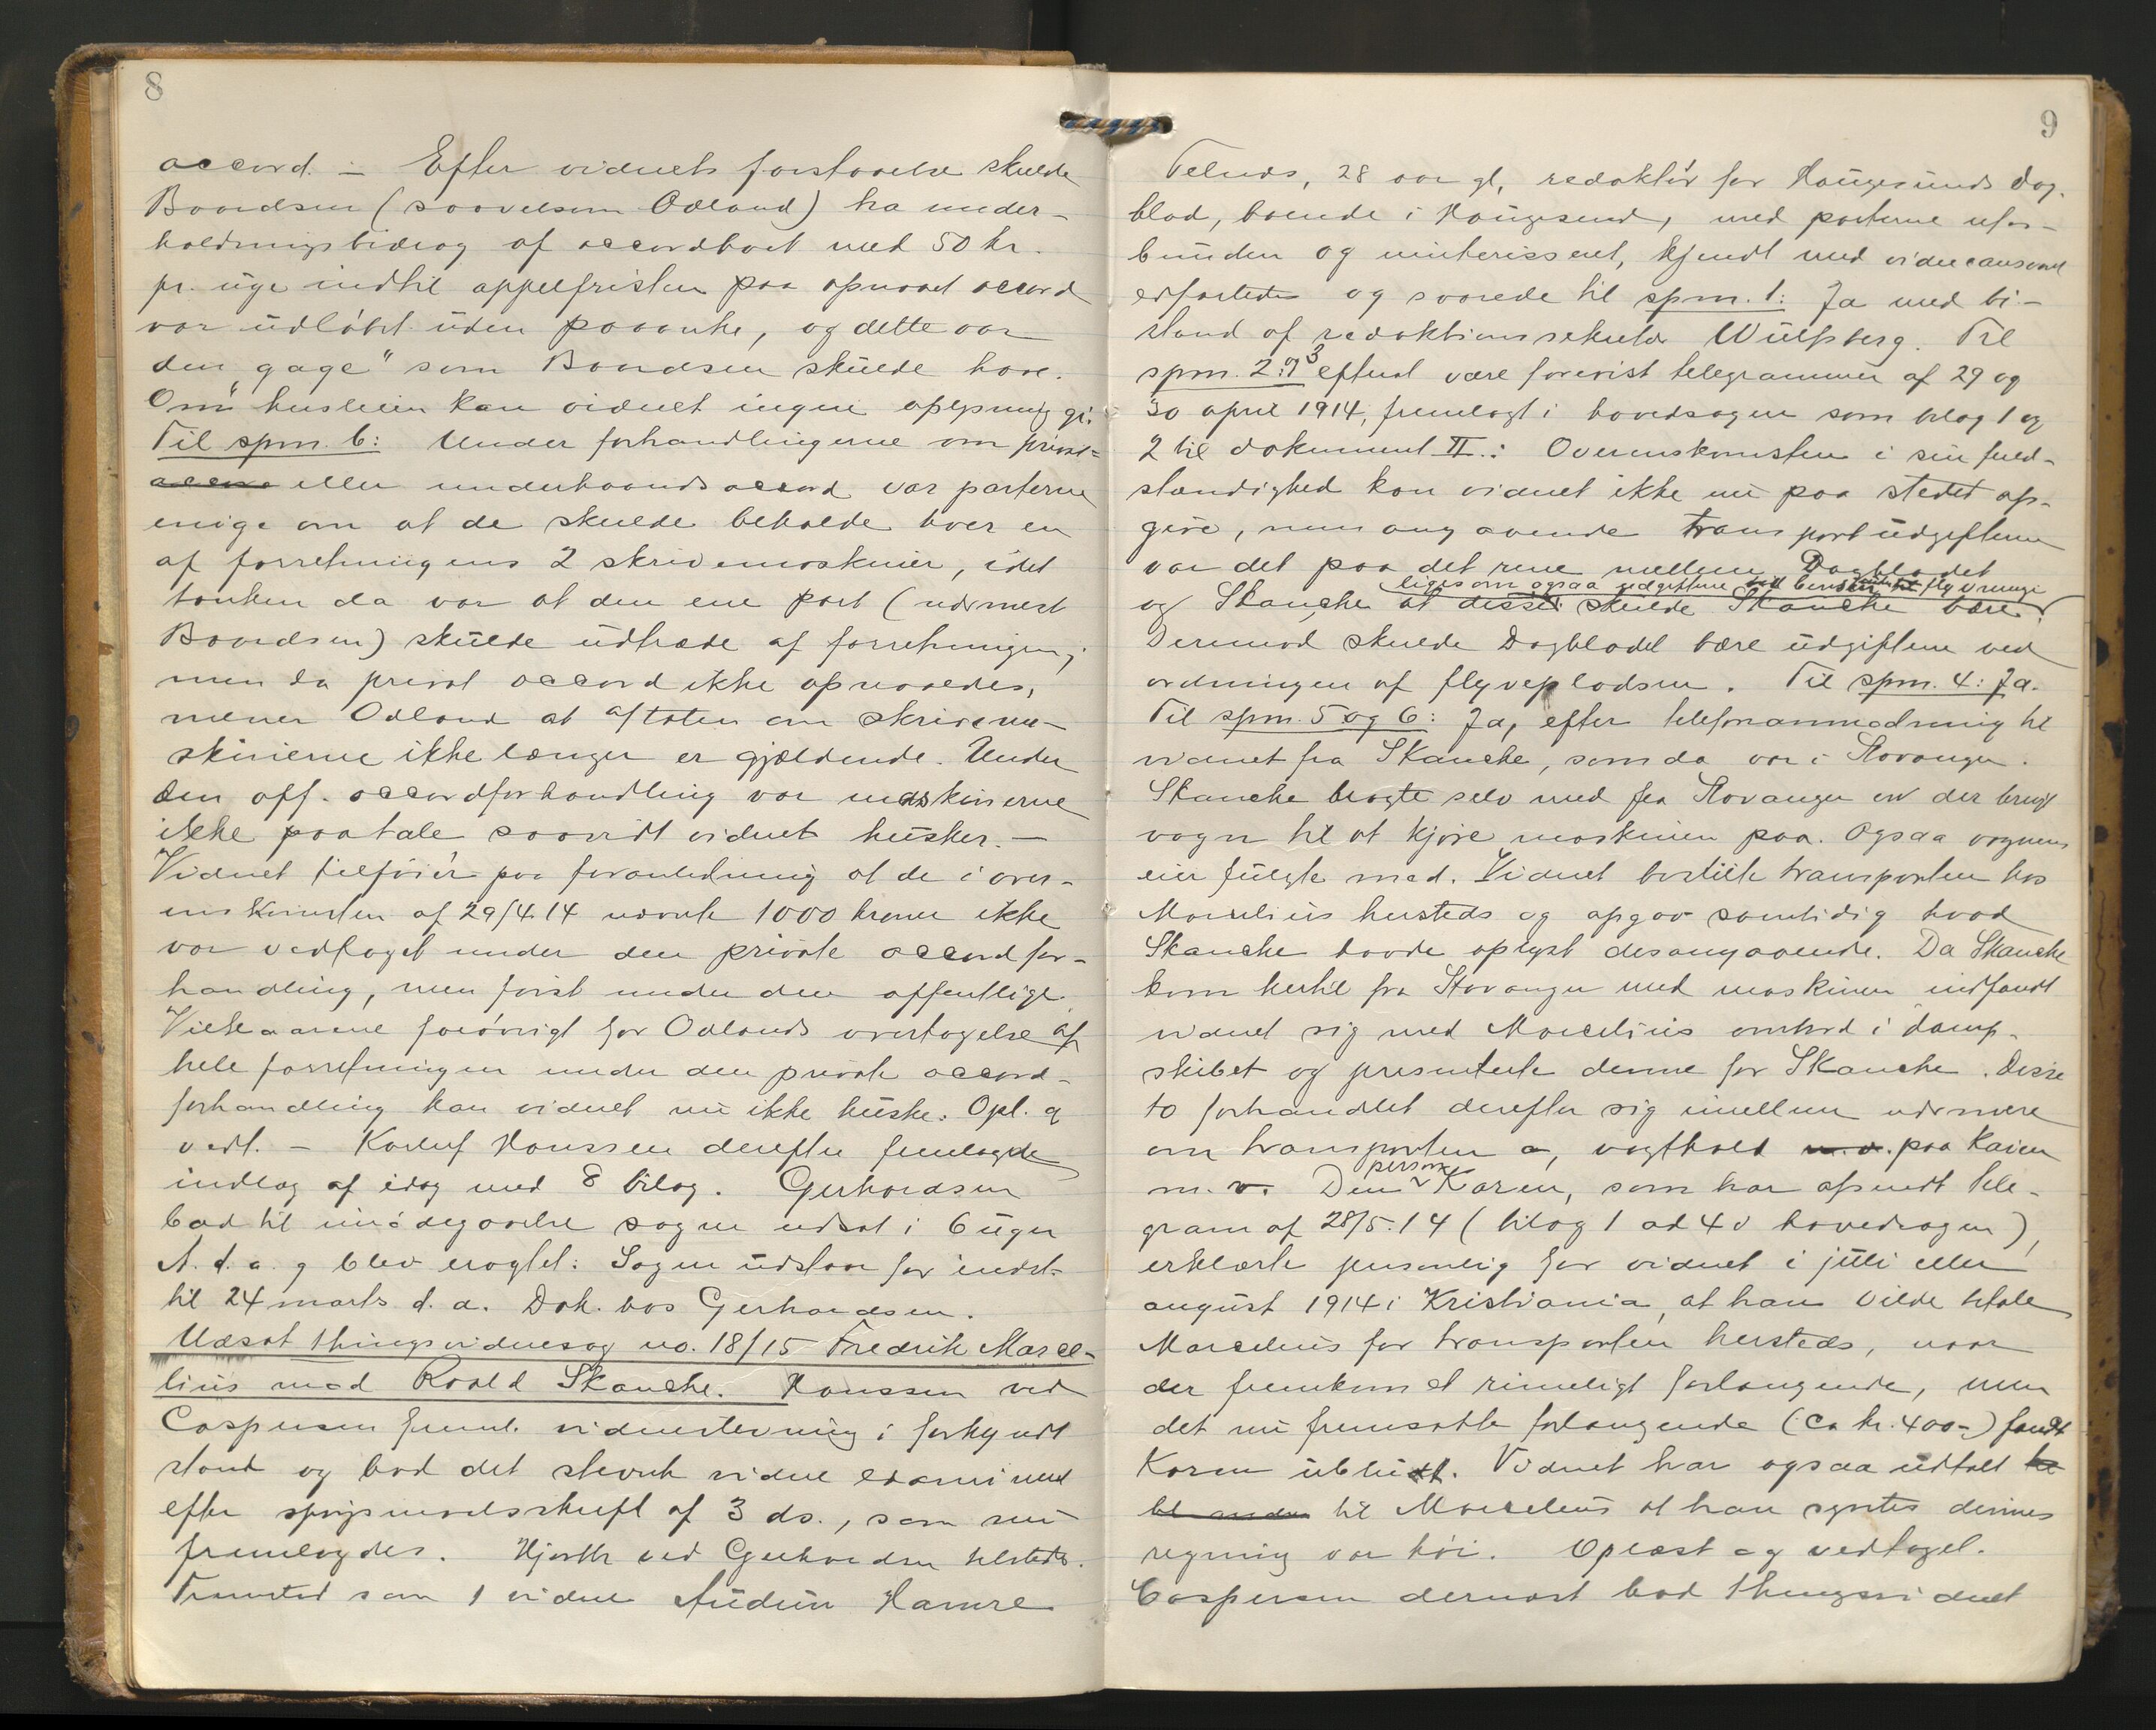 8
accord. – Efter vidnets forstaaelse skulde
Baardsen (saavelsom Odland) ha under-
holdningsbidrag af accordboet med 50 kr.
pr. uge indtil appelfristen paa opnaaet accord
var udløbet uden paaanke, og dette var
den "gage" som Baardsen skulde have.
Om husleien kan vidnet ingen oplysning gi.
Til spm. 6: Under forhandlingerne om privat-
eller underhaandsaccord var parterne
enige om at de skulde beholde hver en
af forretningens 2 skrivemaskiner, idet
tanken da var at den ene part (nærmest
Baardsen) skulde udtræde af forretningen;
men da privat accord ikke opnaaedes,
mener Odland at aftalen om skrivema-
skinerne ikke længer er gjældende. Under
den off. accordforhandling var maskinerne
ikke paatale saavidt vidnet husker. –
Vidnet tilføier paa foranledning at de i over-
enskomsten af 29/4 14 nævnte 1000 kroner ikke
var vedtaget under den private accordfor-
handling, men først under den offentlige.
Vilkaarene forøvrigt for Odlands overtagelse af
hele forretningen under den private accord-
forhandling kan vidnet nu ikke huske. Opl. og
vedt. – Karluf Hanssen derefter fremlagde
indlag af idag med 8 bilag. Gerhardsen
bad til imødegaaelse sagen udsat i 6 uger
A. d. a. g blev eragtet: Sagen udstaar for indst.
til 24 marts d. a. Dok. hos Gerhardsen.
Udsat thingsvidnesag no. 18/15 Fredrik Marce-
lius mod Roald Skanche. Hanssen ved
Caspersen freml. vidnestevning i forkyndt
stand og bad det stevnte vidne examineret
efter spørgsmaalsskrift af 3 ds., som nu
fremlagdes. Hjorth ved Gerhardsen tilstede.
Fremsted som 1 vidne Audun Hamre
9
Telnæs, 28 aar gl, redaktør for Haugesunds Dag-
blad, boende i Haugesund, med parterne ufor-
bunden og uinterisseret, kjendt med vidneansvaret
edfæstedes og svarede til spm. 1: Ja med bi-
stand af redaktionssekretær Wulfsberg. Til
spm. 2 og 3 efterat være forevist telegrammer af 29 og
30 april 1914, fremlagt i hovedsagen som bilag 1 og
2 til dokument II.: Overenskomsten i sin fuld-
stændighed kan vidnet ikke nu paa stedet op-
give, men angaaende transportudgifterne
var det paa det rene mellem Dagbladet
ligesom ogsaa udgifterne ved benzin til flyvninge
og Skanche, at disse skulde Skanche bære.
Derimod skulde Dagbladet bære udgifterne ved
ordningen af flyvepladsen. Til spm. 4: Ja.
Til spm. 5 og 6: Ja, efter telefonanmodning til
vidnet fra Skanche, som da var i Stavanger.
Skanche bragte selv med fra Stavanger en der brugt
vogn til at kjøre maskinen paa. Ogsaa vognens
eier fulgte med. Vidnet bestilte transporten hos
Marcelius hersteds og opgav samtidig hvad
Skanche havde oplyst desangaaende. Da Skanche
kom hertil fra Stavanger med maskinen indfandt
vidnet sig med Marcelius ombord i damp-
skibet og presenterte denne for Skanche. Disse
to forhandlet derefter sig imellem nærmere
om transporten, vagthold paa kaien
m. v. Den person Karen, som har afsendt tele-
gram af 28/5.14 (bilag 1 ad 4 v hovedsagen),
erklærte personlig for vidnet i juli eller
august 1914 i Kristiania, at han vilde betale
Marcelius for transporten hersteds, naar
der fremkom et rimeligt forlangende, men
det nu fremsatte forlangende (ca kr. 400-) fandt
Karen ublidt. Vidnet har ogsaa udtalt
til Marcelius at han syntes dennes
regning var høi. Oplæst og vedtaget.
Caspersen dernæst bad thingsvidnet